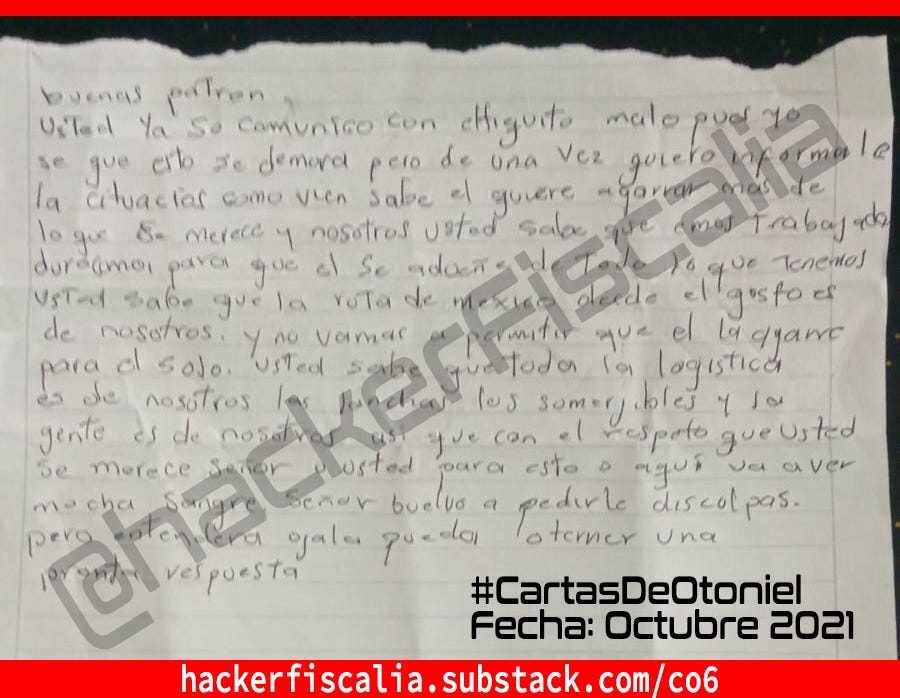 buenas patron
usted ya se comunico con el higuito malo pues yo
se que esto se demora pero de una vez quiero informale
la cituacias como vien sabe el quiere agarrar mas de
lo que se merece y nosotros usted sabe que emos trabajado
para que el se adueñe de todo lo que tenemos
usted sabe que la ruta de mexico desde el gosfo es
de nosotros. y no vamas a permitir que el la agarre
para el solo. usted sabe que toda la logistica
es de nosotros las los somerjibles y la
gente es de nosotros asi que con el respeto que usted
se merece señor usted para esto o aqui va aver
mucha sangre señor buelvo a pedirle discolpas.
pero entendera ojala pueda oterner una
pronta respuesta
@hackerfiscalia
#CartasDeOtoniel
Fecha: Octubre 2021
hackerfiscalia.substack.com/co6